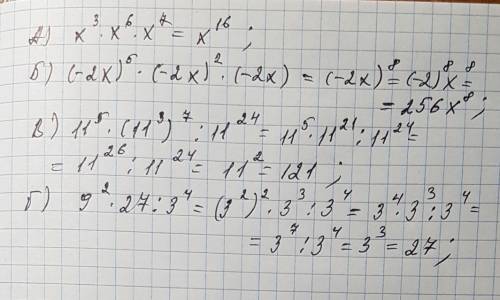 А) x³ · x⁶ · x⁷ = x¹⁶ ;
Б) (-2x)⁵ · (-2x)² · (-2x) = (-2x)⁸ = (-2)⁸x⁸ =
= 256x⁸ ;
В) 11⁵ · (11³)⁷ : 11²⁴ = 11⁵ · 11²¹ : 11²⁴ =
= 11²⁶ : 11²⁴ = 11² = 121 ;
Г) 9² · 27 : 3⁴ = (3²)² · 3³ : 3⁴ = 3⁴ · 3³ : 3⁴ =
= 3⁷ : 3⁴ = 3³ = 27 ;